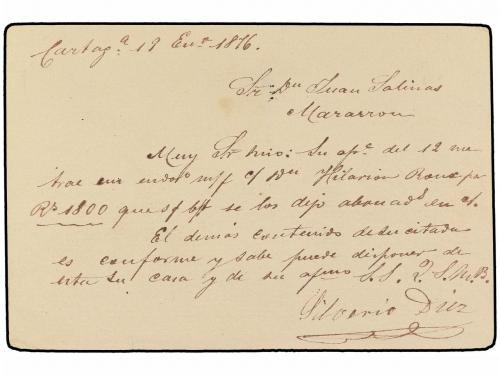 Cartagª 19 Enº 1876.
Sr. Dn Juan Salinas
Mazarron
Muy Sr mio: Su apª del 12 me
trae en endoº m/f c/ Dn Hilarion Roux por
Rs 1800 que s/ se los dejo abonadˢ en c/.
El demás contenido de su citada
es conforme y sabe puede disponer de
esta su casa y de su afmo S.S. Q.S.M.B.
Silverio Diez